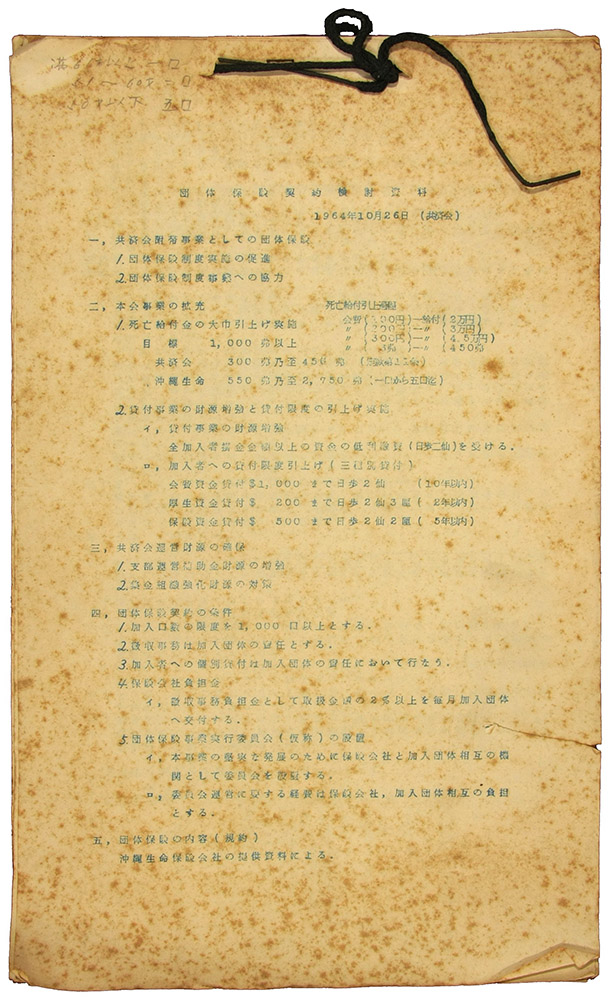 一口
61〜60才 二口
五口
団体保険契約検討資料
1964年10月26日 (共済会)
一, 共済会附帯事業としての団体保険
1.団体保険制度実施の促進
2.団体保険制度事業への協力
二, 本会事業の拡充
死亡給付引上
1.死亡給付金の大巾引上げ実施
会費(100円)—給付(2万円)
〃 (200円)—〃 (3万円)
目標 1,000弗以上
〃 (300円)—〃 (4.5万円)
〃 —〃 (450弗)
共済会 300弗乃至450弗
沖縄生命 550弗乃至2,750弗 (一口から五口迄)
2.貸付事業の財源増強と貸付限度の引上げ実施
イ, 貸付事業の財源増強
全加入者掛金全額以上の資金の低利融資(日歩二仙)を受ける.
ロ, 加入者への貸付限度引上げ(三種別貸付)
公管資金貸付$1,000まで日歩2仙 (10年以内)
厚生資金貸付$ 200まで日歩2仙3厘( 2年以内)
保険資金貸付$ 500まで日歩2仙2厘( 5年以内)
三, 共済会運営財源の確保
1.支部運営補助金財源の増強
2.集金組織強化財源の対策
四, 団体保険契約の条件
1.加入口数の限度を1,000口以上とする.
2.徴収事務は加入団体の責任とする.
3.加入者への個別貸付は加入団体の責任において行なう.
4.保険会社負担金
イ, 徴収事務負担金として取扱金額の2%以上を毎月加入団体
へ交付する.
5.団体保険事業実行委員会(仮称)の設置
イ, 本事業の堅実な発展のために保険会社と加入団体相互の機
関として委員会を設置する.
ロ, 委員会運営に要する経費は保険会社,加入団体相互の負担
とする.
五, 団体保険の内容(規約)
沖縄生命保険会社の提供資料による.